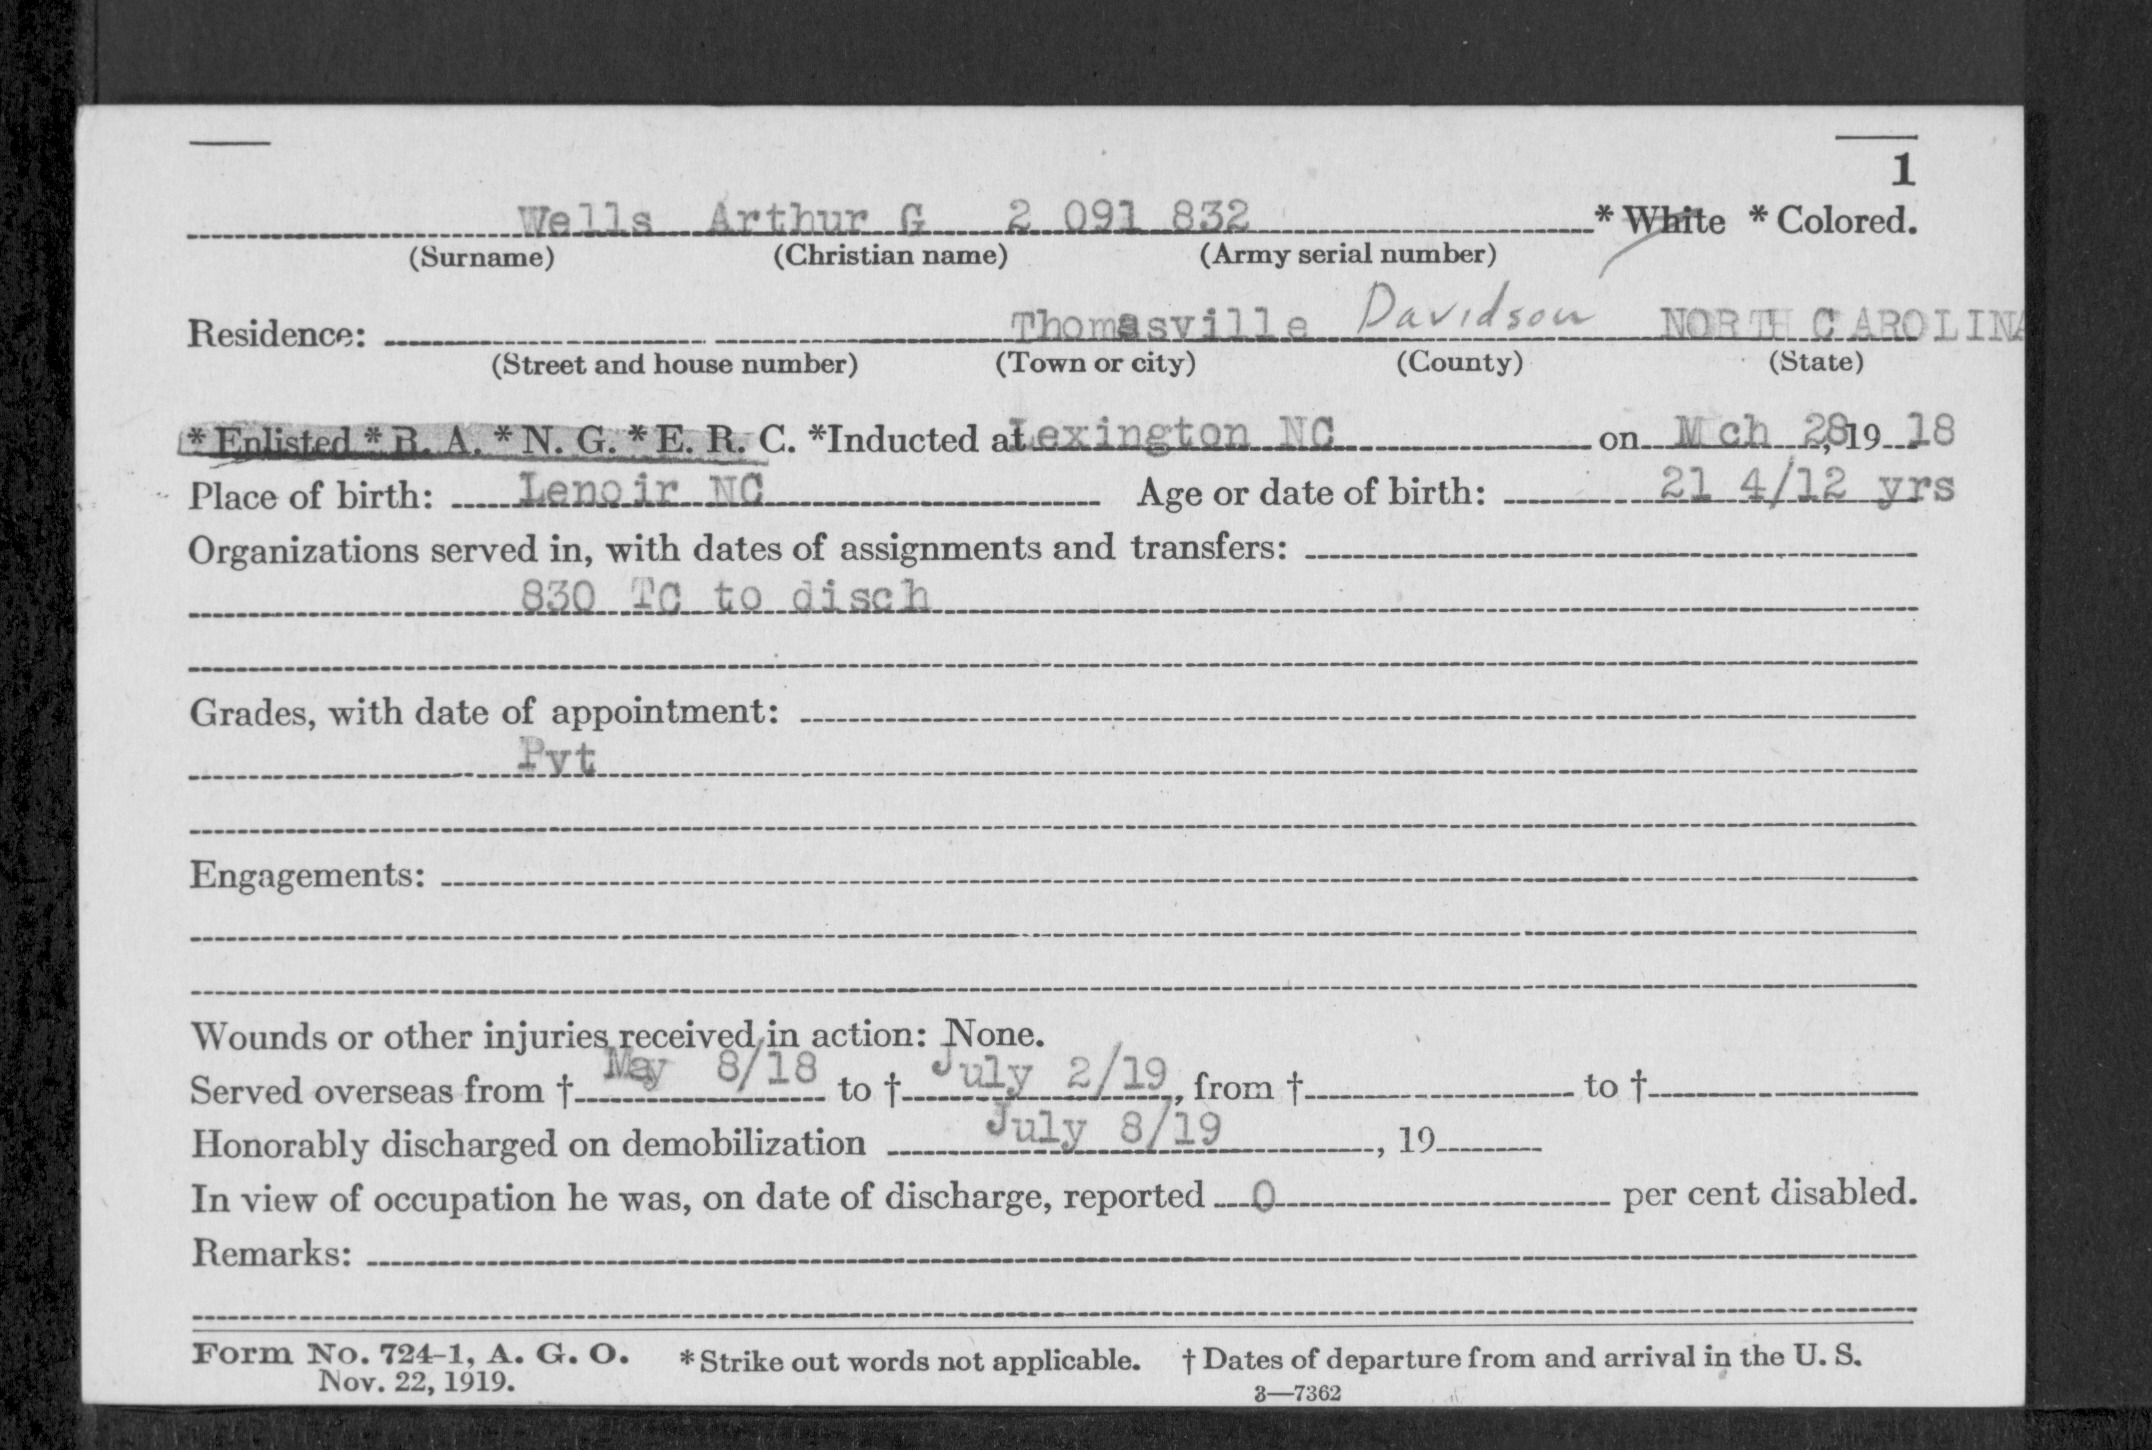 1
Wells Arthur G 2 091 832 * White * Colored.
(Surname) (Christian name) (Army serial number)
Residence: Thomasville Davidson NORTH CAROLINA
(Street and house number) (Town or city) (County) (State)
* Enlisted * R. A. * N. G. * E. R. C. *Inducted at Lexington NC on Mch 28, 19 18
Place of birth: Lenoir NC Age or date of birth: 21 4/12 yrs
Organizations served in, with dates of assignments and transfers:
830 TC to disch
Grades, with date of appointment:
Pvt
Engagements:
Wounds or other injuries received in action: None.
Served overseas from † May 8/18 to † July 2/19, from † to †
Honorably discharged on demobilization July 8/19, 19
In view of occupation he was, on date of discharge, reported 0 per cent disabled.
Remarks:
Form No. 724-1, A. G. O. * Strike out words not applicable. † Dates of departure from and arrival in the U. S.
Nov. 22, 1919. 3—7362